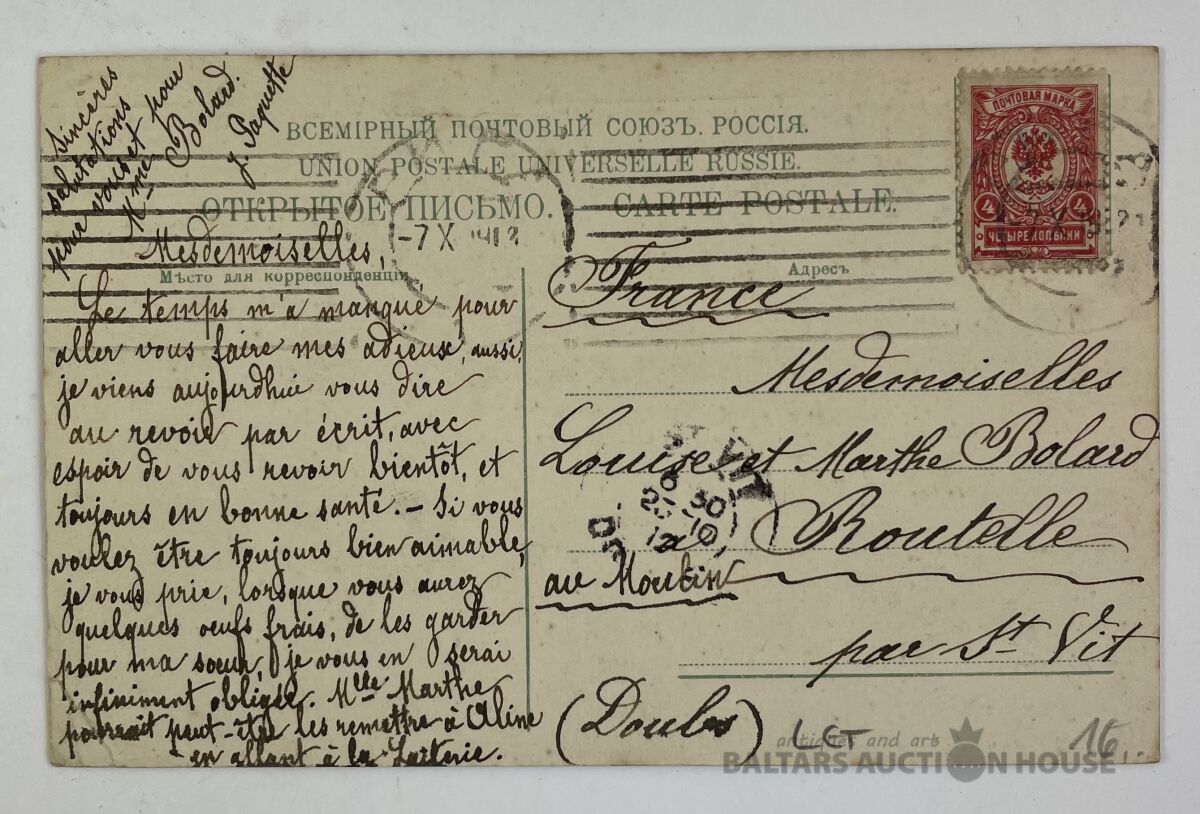 ВСЕМІРНЫЙ ПОЧТОВЫЙ СОЮЗЪ. РОССІЯ.
UNION POSTALE UNIVERSELLE RUSSIE.
ОТКРЫТОЕ ПИСЬМО. — CARTE POSTALE.
Мѣсто для корреспонденціи
Адресъ
ПОЧТОВАЯ МАРКА
4 4
ЧЕТЫРЕ КОПѢЙКИ
-7 X 1912
Mesdemoiselles,
Le temps m'a manqué pour
aller vous faire mes adieux, aussi,
je viens aujourdhui vous dire
au revoir par écrit, avec
espoir de vous revoir bientôt, et
toujours en bonne santé. – Si vous
voulez être toujours bien aimable,
je vous prie, lorsque vous aurez
quelques oeufs frais, de les garder
pour ma soeur, je vous en serai
infiniment obligée. Mlle Marthe
pourrait peut-être les remettre à Aline
en allant à la Laiterie.
Sincères
salutations
pour vous et pour
Mme Bolard.
J. Paquette
France
Mesdemoiselles
Louise et Marthe Bolard
à Routelle
au Moulin
par St Vit
(Doubs)
ST VIT
6 30
12
LET
16
antiques and arts
BALTARS AUCTION HOUSE